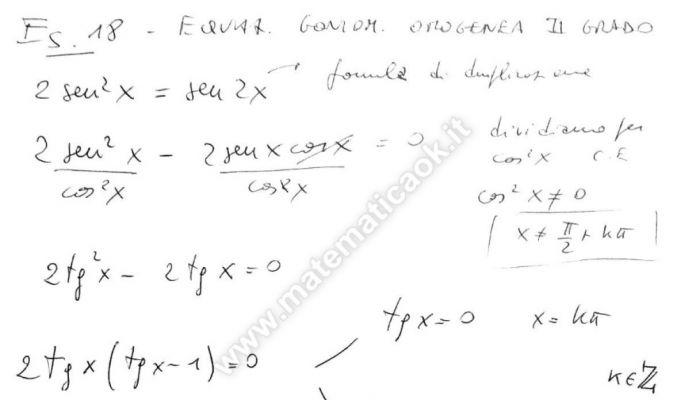 Es. 18 - EQUAZ. GONIOM. OMOGENEA II GRADO
2 sen²x = sen 2x → formula di duplicazione
2 sen²x / cos²x - 2 sen x cos x / cos²x = 0
dividiamo per
cos²x C.E
cos²x ≠ 0
x ≠ π/2 + kπ
2 tg²x - 2 tg x = 0
tg x = 0 x = kπ
2 tg x (tg x - 1) = 0
k ∈ ℤ
www.matematicaok.it